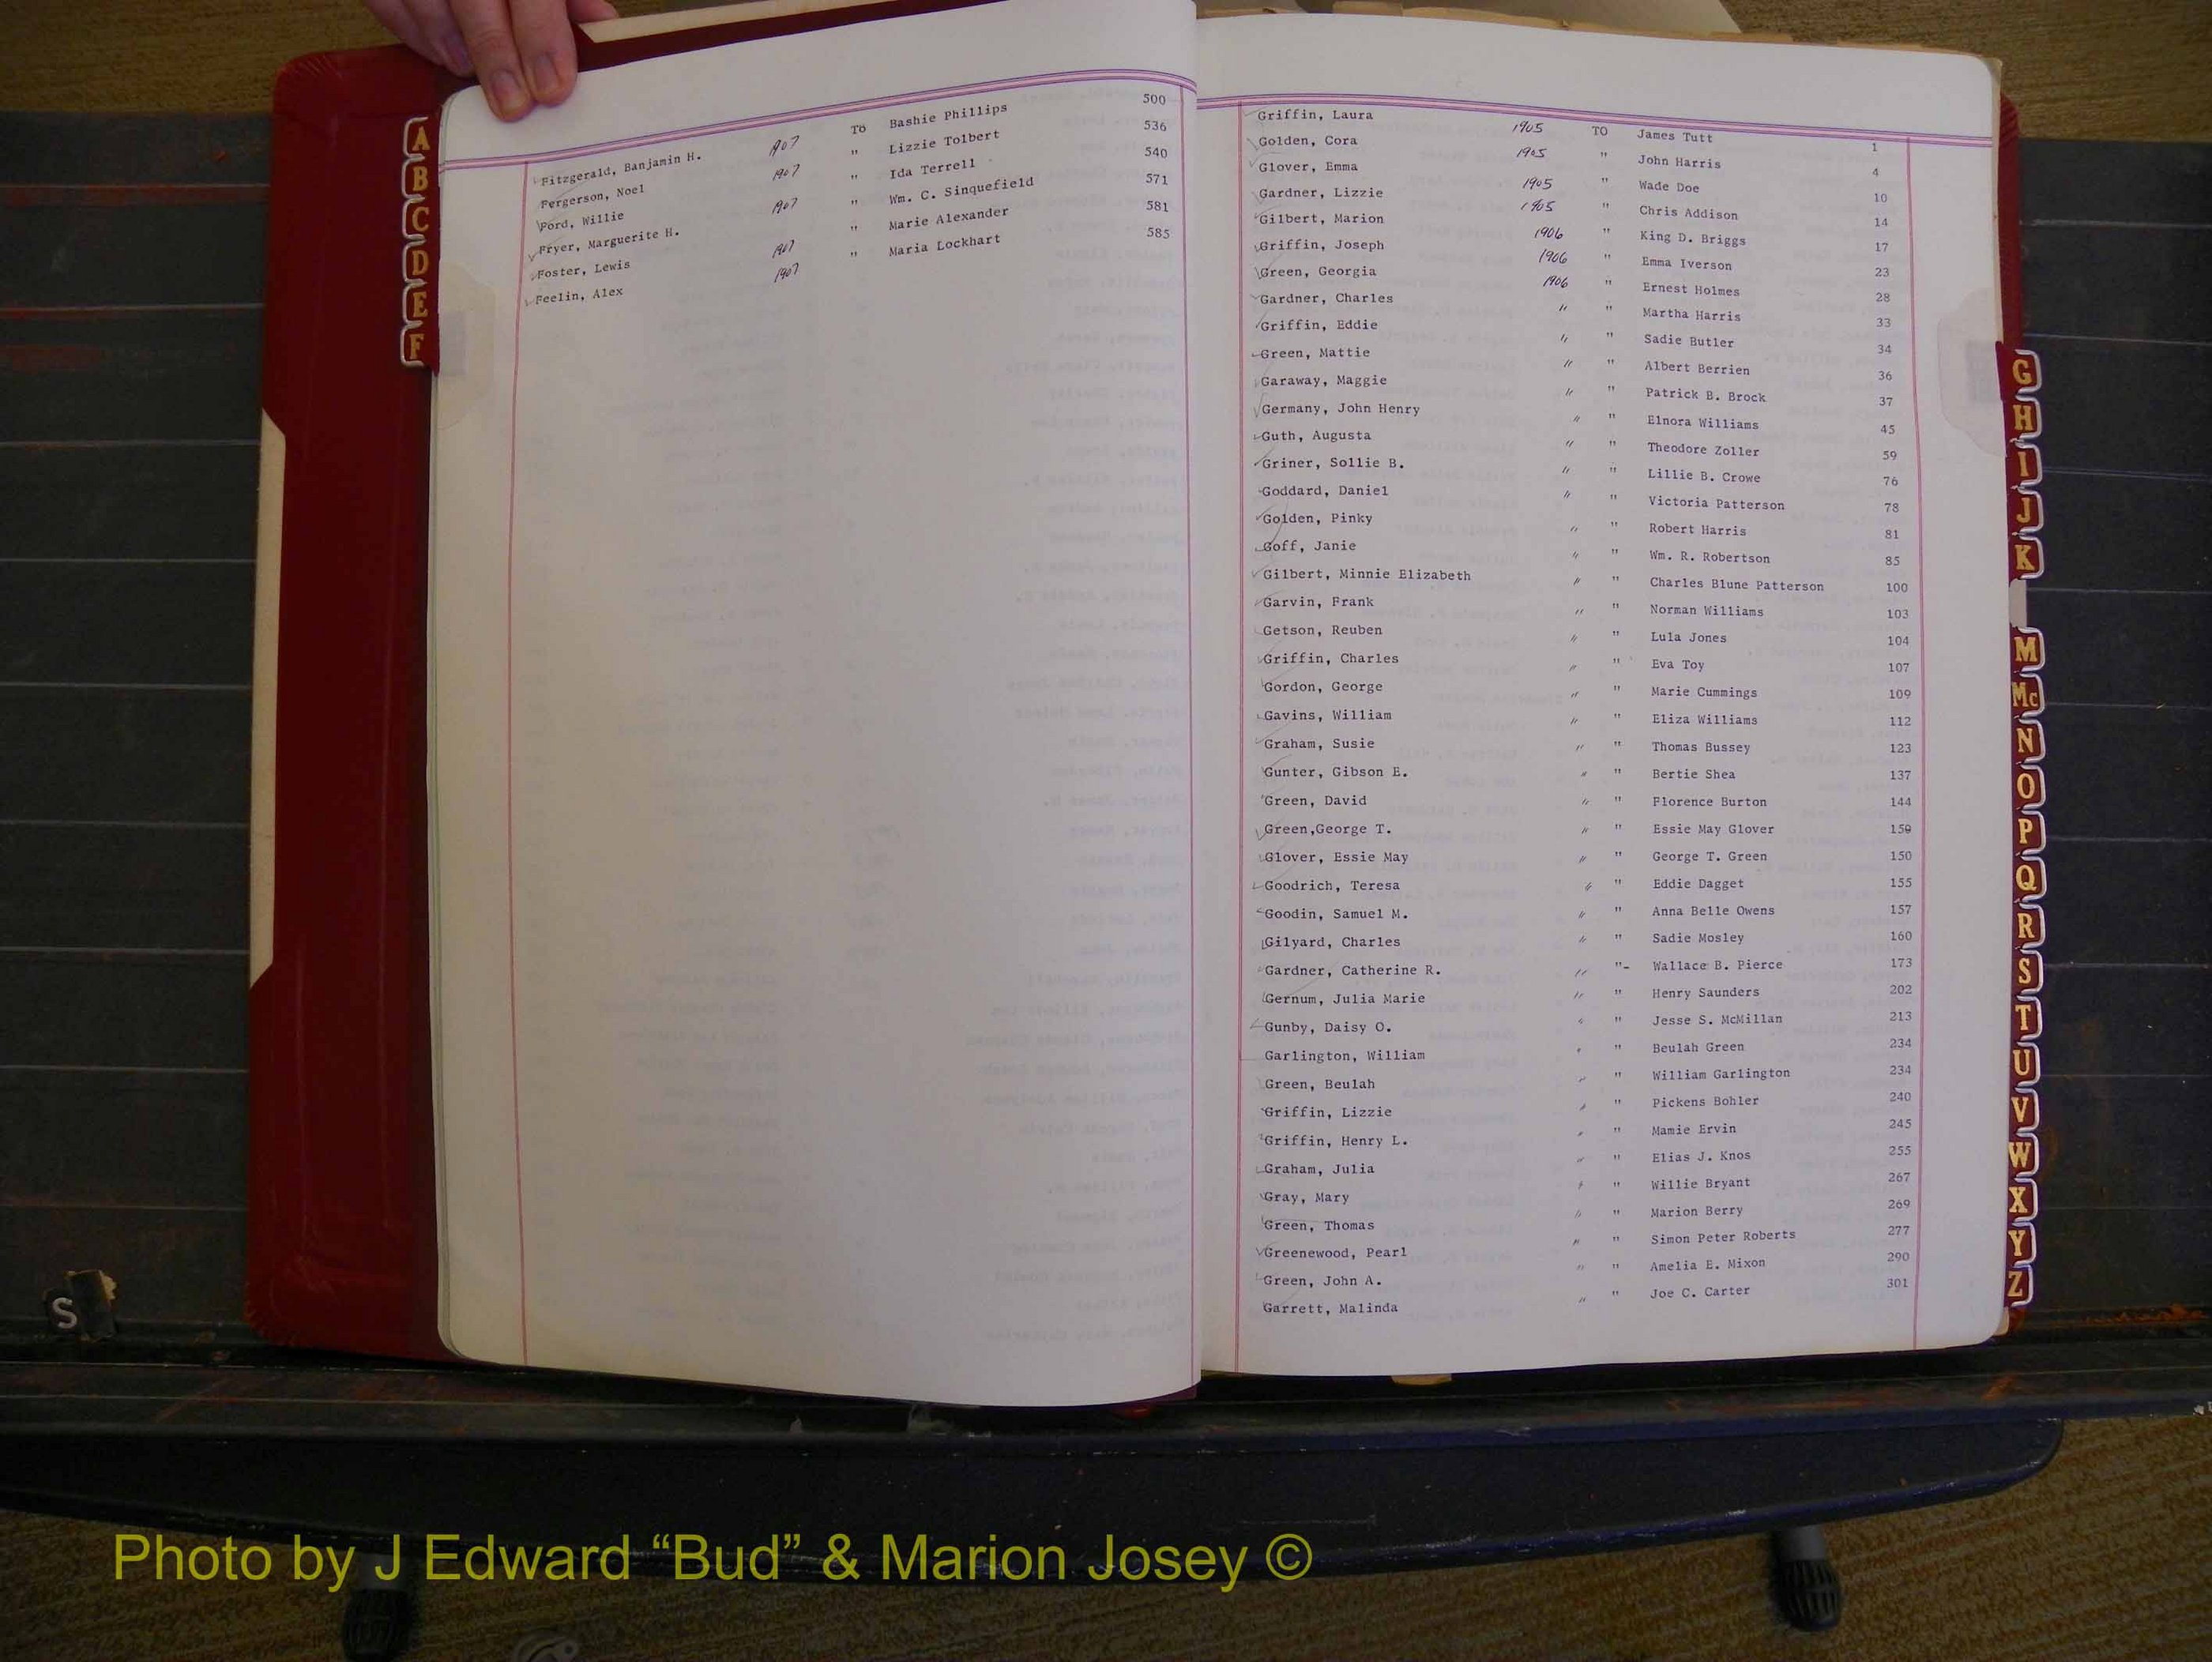 A
B
C
D
E
F
Fitzgerald, Banjamin H. 1907 To Bashie Phillips 500
Fergerson, Noel 1907 " Lizzie Tolbert 536
Ford, Willie 1907 " Ida Terrell 540
Fryer, Marguerite H. " Wm. C. Sinquefield 571
Foster, Lewis 1907 " Marie Alexander 581
Feelin, Alex 1907 " Maria Lockhart 585
Griffin, Laura 1905 TO James Tutt 1
Golden, Cora 1905 " John Harris 4
Glover, Emma 1905 " Wade Doe 10
Gardner, Lizzie 1905 " Chris Addison 14
Gilbert, Marion 1906 " King D. Briggs 17
Griffin, Joseph 1906 " Emma Iverson 23
Green, Georgia 1906 " Ernest Holmes 28
Gardner, Charles " " Martha Harris 33
Griffin, Eddie " " Sadie Butler 34
Green, Mattie " " Albert Berrien 36
Garaway, Maggie " " Patrick B. Brock 37
Germany, John Henry " " Elnora Williams 45
Guth, Augusta " " Theodore Zoller 59
Griner, Sollie B. " " Lillie B. Crowe 76
Goddard, Daniel " " Victoria Patterson 78
Golden, Pinky " " Robert Harris 81
Goff, Janie " " Wm. R. Robertson 85
Gilbert, Minnie Elizabeth " " Charles Blune Patterson 100
Garvin, Frank " " Norman Williams 103
Getson, Reuben " " Lula Jones 104
Griffin, Charles " " Eva Toy 107
Gordon, George " " Marie Cummings 109
Gavins, William " " Eliza Williams 112
Graham, Susie " " Thomas Bussey 123
Gunter, Gibson E. " " Bertie Shea 137
Green, David " " Florence Burton 144
Green,George T. " " Essie May Glover 150
Glover, Essie May " " George T. Green 150
Goodrich, Teresa " " Eddie Dagget 155
Goodin, Samuel M. " " Anna Belle Owens 157
Gilyard, Charles " " Sadie Mosley 160
Gardner, Catherine R. " "- Wallace B. Pierce 173
Gernum, Julia Marie " " Henry Saunders 202
Gunby, Daisy O. " " Jesse S. McMillan 213
Garlington, William " " Beulah Green 234
Green, Beulah " " William Garlington 234
Griffin, Lizzie " " Pickens Bohler 240
Griffin, Henry L. " " Mamie Ervin 245
Graham, Julia " " Elias J. Knos 255
Gray, Mary " " Willie Bryant 267
Green, Thomas " " Marion Berry 269
Greenewood, Pearl " " Simon Peter Roberts 277
Green, John A. " " Amelia E. Mixon 290
Garrett, Malinda " " Joe C. Carter 301
G
H
I
J
K
M
Mc
N
O
P
Q
R
S
T
U
V
W
X
Y
Z
S
Photo by J Edward “Bud” & Marion Josey ©